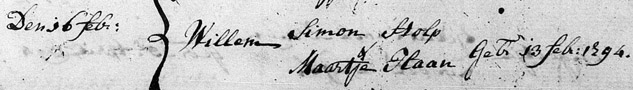 Den 16 feb:
Willem
Simon Stolp
&
Maartje Slaan
Geb 13 feb: 1794.